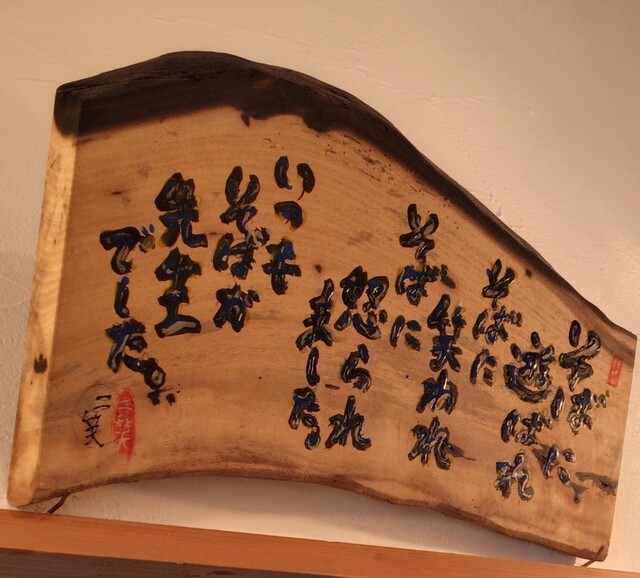 そばに
遊ばれ
そばに
笑われ
そばに
怒られ
来ました
いつも
そばが
先生
でした。